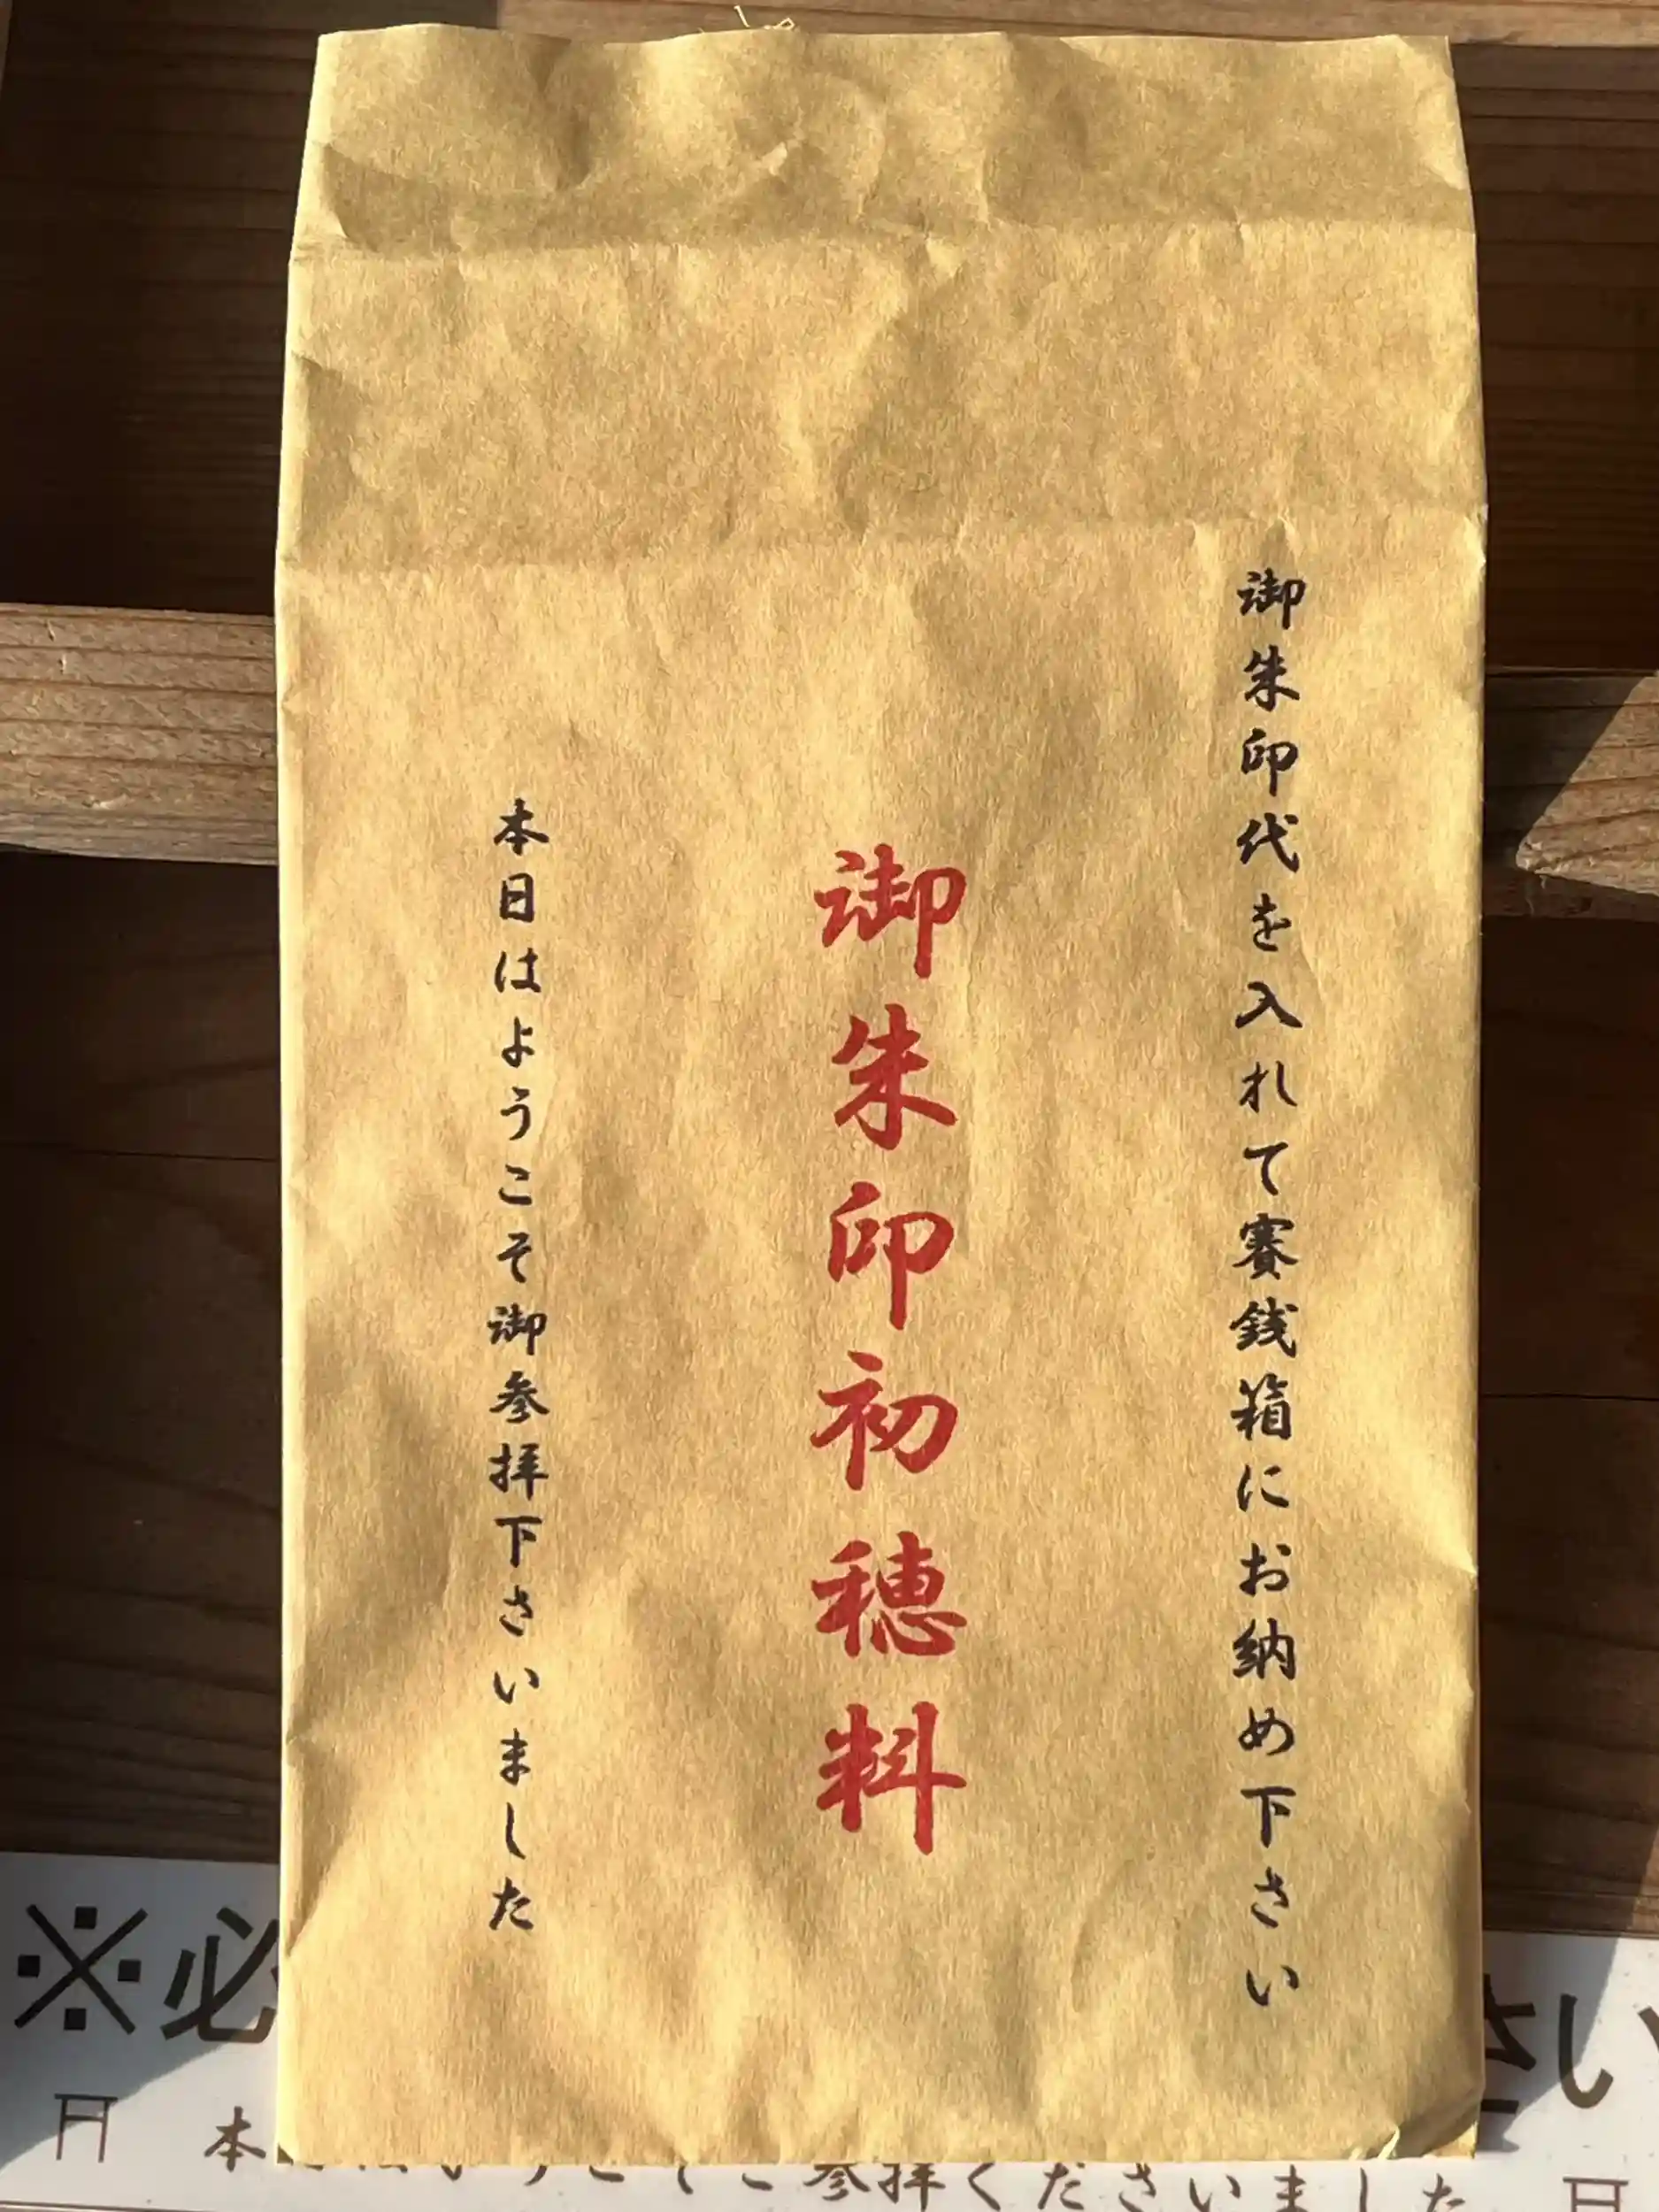 御朱印代を入れて賽銭箱にお納め下さい
御朱印初穂料
本日はようこそ御参拝下さいました
※必
さい
本
参拝くださいました